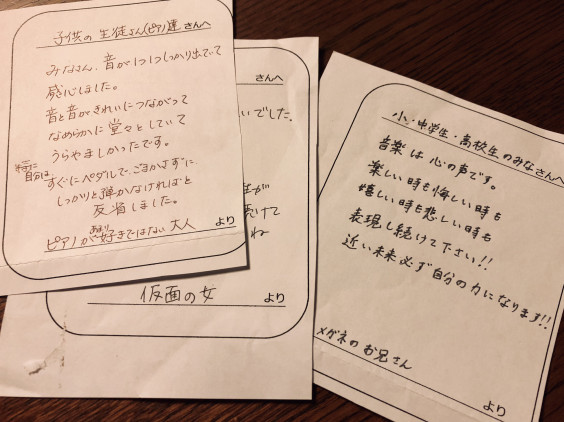 子供の生徒さん(ピアノ)達 さんへ
みなさん、音が1つ1つしっかり出ていて
感心しました。
音と音がきれいにつながって
なめらかに堂々としていて
うらやましかったです。
特に
自分は すぐにペダルして、ごまかさずに
しっかりと弾かなければと
反省しました。
あまり
ピアノが好きではない大人 より
さんへ
いでした。
が
続けて
ね
仮面の女 より
小・中学生・高校生のみなさんへ
音楽は心の声です。
楽しい時も悔しい時も
嬉しい時も悲しい時も
表現し続けて下さい!!
近い未来必ず自分の力になります!!
メガネのお兄さん
より